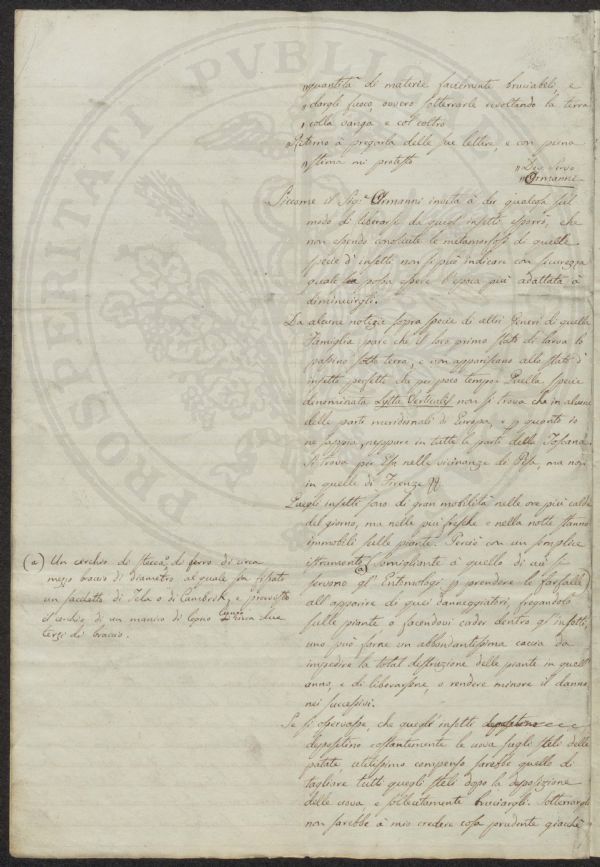 "quantità di materie facilmente bruciabili, e
"dargli fuoco, ovvero sotterrarle rivoltando la terra
"colla vanga e col coltro
Ritorno a pregarla delle sue lettere, e con piena
"stima mi protesto
"Dev. Servo
"Ormanni
Siccome il Sig.r Ormanni invita à dir qualcosa sul
modo di liberarsi da quegl' insetti esporrò, che
non essendo conosciute le metamorfosi di quelle
specie d' insetti non si può indicare con sicurezza
quale possa essere l' epoca più adattata à
diminuirgli.
Da alcune notizie sopra specie di altri Generi di quella
Famiglia pare che il loro primo stato di larva lo
passino sotto terra, e non appariscano allo stato d'
insetto perfetto che per poco tempo. Quella specie
denominata Lytta Verticalis non si trova che in alcune
delle parti meridionali di Europa, e p quanto io
ne sappia, neppure in tutte le parti della Toscana.
Si trova per Es. nelle vicinanze di Pisa, ma non
in quelle di Firenze
Quegli insetti sono di gran mobilità nelle ore più calde
del giorno, ma nelle più fresche e nella notte stanno
immobili sulle piante. Perciò con un semplice
istrumento (a) somigliante à quello di cui si
servono gl' Entomologi p prendere le farfalle
all' apparire di quei danneggiatori, fregandolo
sulle piante o facendovi cader dentro gl' insetti,
uno può farne un abbondantissima caccia da
impedire la total distruzione delle piante in quell'
anno, e di liberarsene, o rendere minore il danno
nei successivi.
Se si osservasse, che quegl' insetti depositino
depositino costantemente le uova sugli steli delle
patate, utilissimo compenso sarebbe quello di
tagliare tutti quegli steli dopo la deposizione
delle uova, e sollecitamente bruciargli. Sotterrargli
non sarebbe à mio credere cosa prudente giacchè
(a) Un cerchio di stecca, o di ferro di circa
mezzo braccio di diametro al quale sia fissato
un sacchetto di Tela o di Cambrik, e provvisto
il cerchio di un manico di legno lungo circa due
terzi di braccio.
PROSPERITATI PVBLICAE